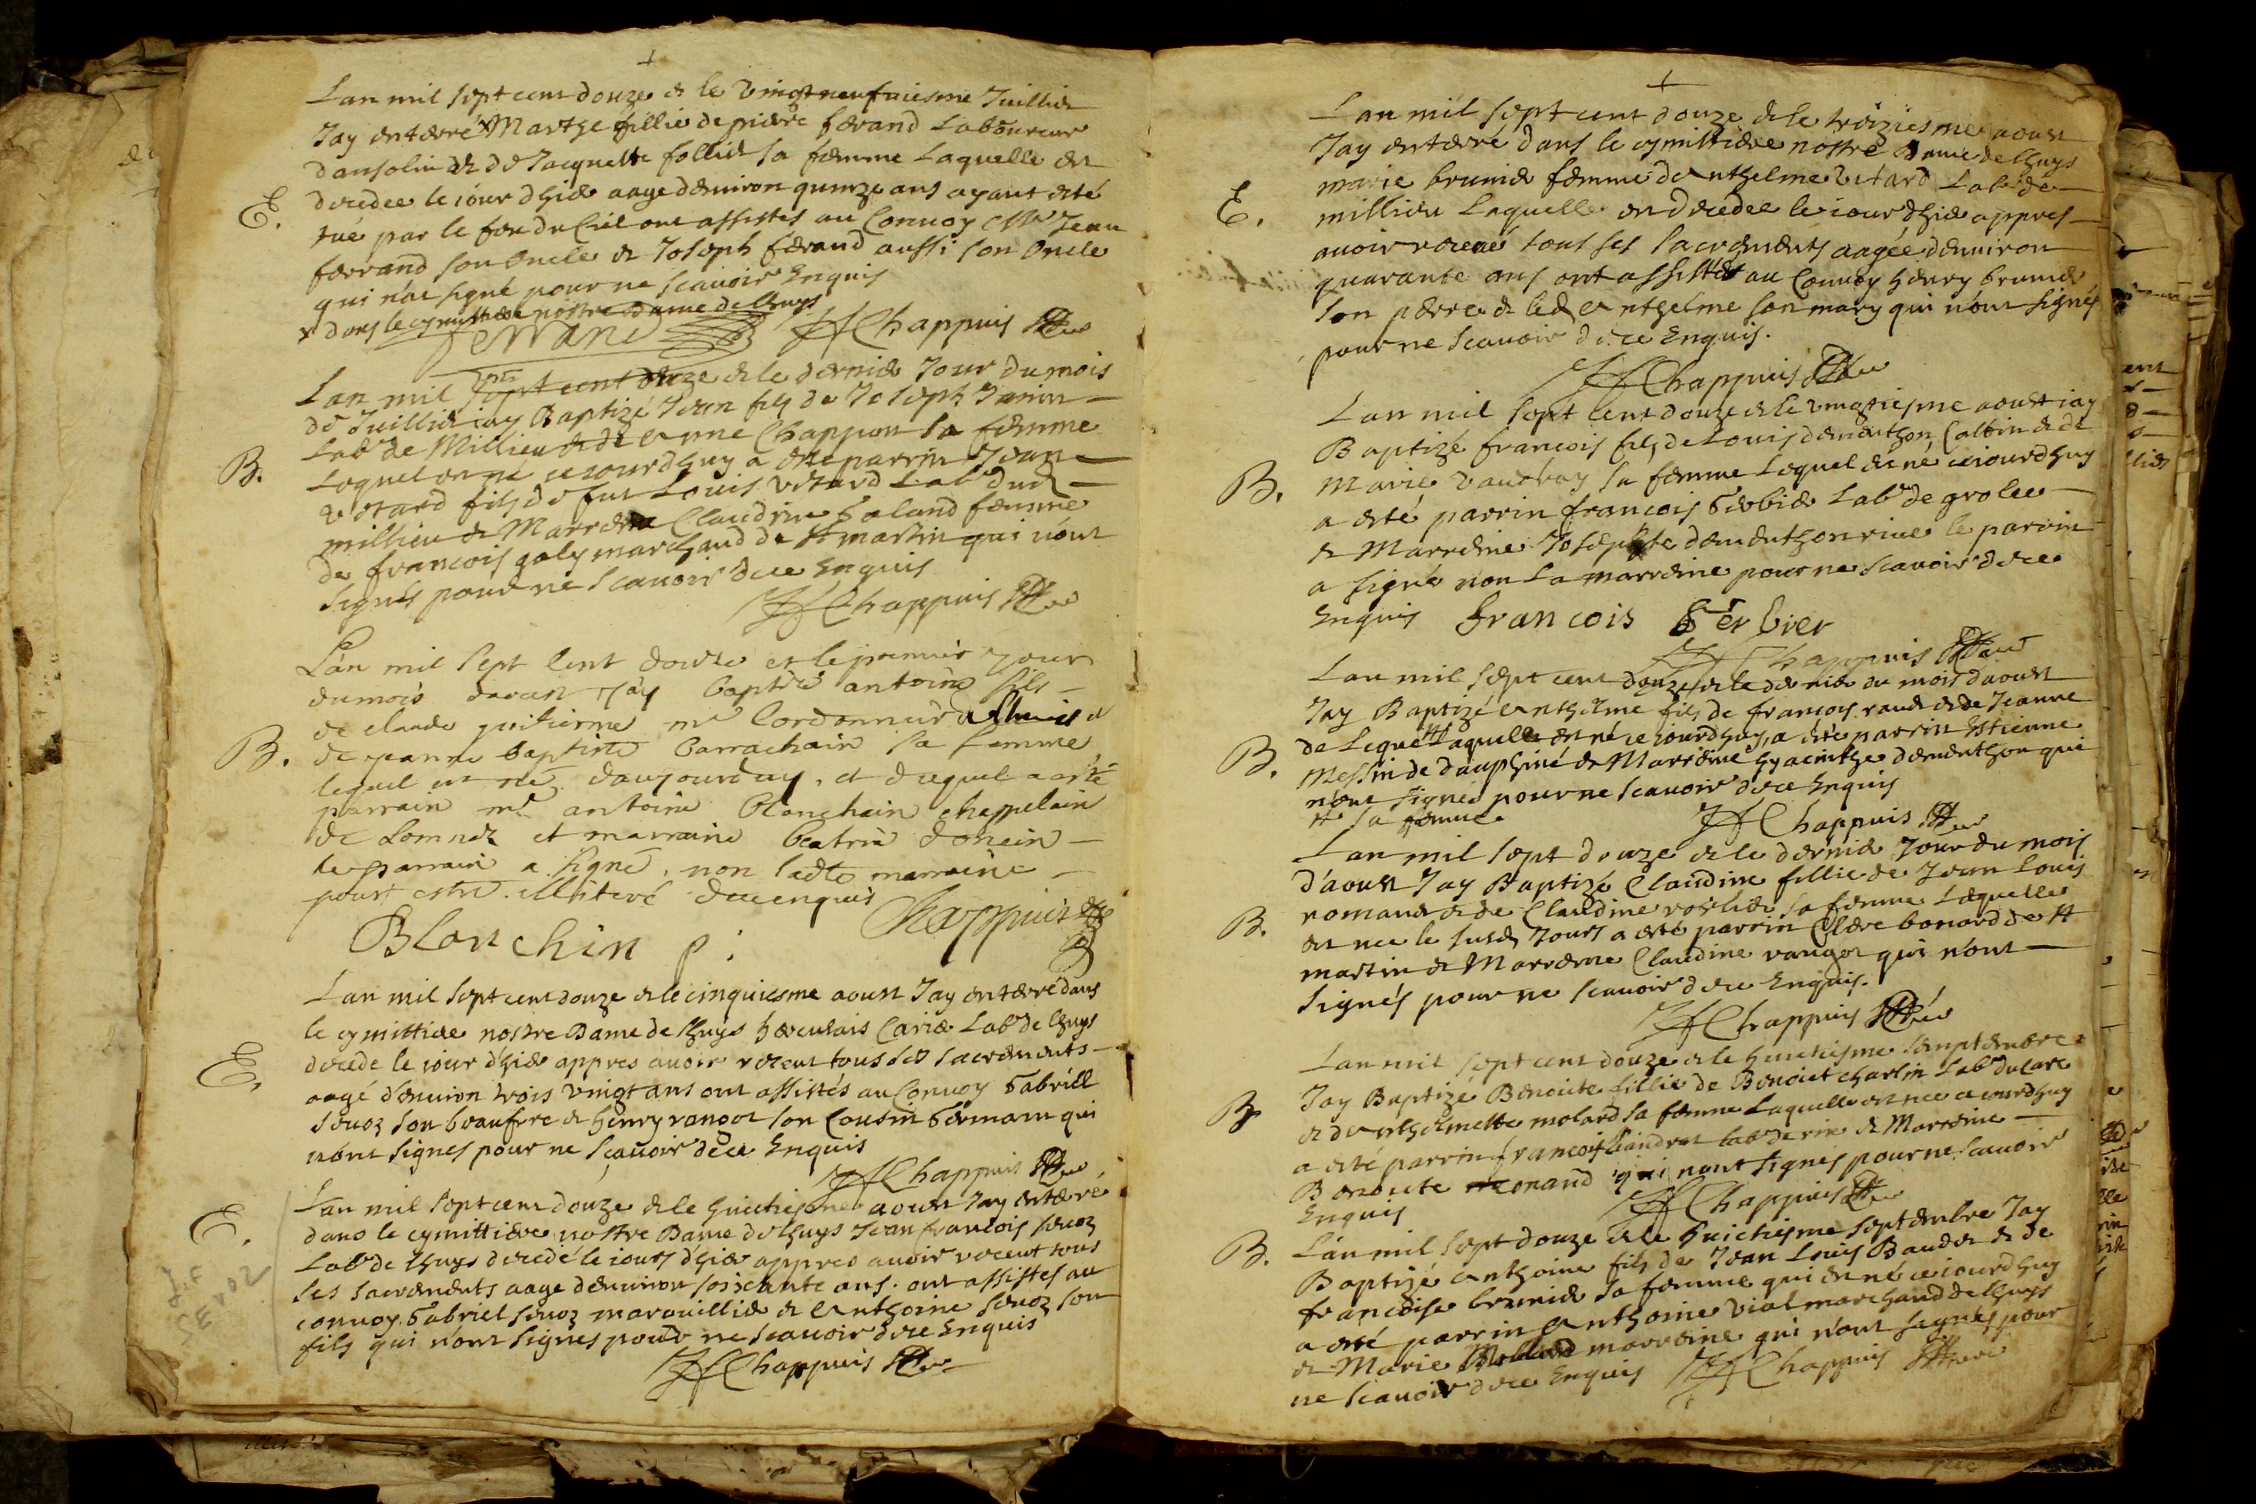 Lan mil sept cent douze & le vingt neufuiesme Juillier
Jay enterré Marthe fillie de pierre ferand Laboureur
dansolin & de Jacquette follier sa femme Laquelle est
E. decedee le iour dhier aage denuiron quinze ans ayant esté
tué par le feu du Ciel ont assistes au Conuoy Mr Jean
ferrand son Oncle & Joseph ferand aussi son Oncle
qui n'at signé pour ne scauoir Enquis
x dans le cymittiere nostre Dame de lhuys
ferrand Chappuis
Lan mil sept cent douze & le dernier Jour du mois
de Juillier iay Baptizé Jean fils de Joseph Janin
Labr de Millieu & de Anne Chappon sa femme
B. Lequel est né ce iourdhuy a esté parrin Jean
vetard fils de fut Louis vetard Labr dud
millieu & Marreine Claudine baland femme
de francois galy marchand de st martin qui n'ont
signés pour ne scauoir de ce Enquis
Chappuis
Lan mil sept cent douze et le premier jour
du mois daoust Jay baptisé antoine fils
de claude guilierme mr Cordonnier a lhuis &
B. de jeanne baptiste barrachain sa femme
lequel est né daujourduy, et duquel a esté
parrain mr antoine blanchain chappelain
de Lomnez et marraine beatrix donein
le parrain a signé, non ladte marraine
pour estre illiteré de ce enquis
Blanchin p: Chappuis
Lan mil sept cent douze & le cinquiesme aoust Jay enterré dans
le cymittiere nostre Dame de lhuys herculais Carier Labr de lhuys
E. decede le iour dhier appres auoir receut tous ses sacrements
aagé d'enuiron trois vingt ans ont assistés au Conuoy Gabriell
seuoz son beaufrere & henry rangot son Cousin Germain qui
n'ont signes pour ne scauoir de ce Enquis
Chappuis
E. Lan mil sept cent douze & le huictiesme aoust Jay enterré
dans le cymittiere nostre Dame de lhuys Jean francois seuoz
Labr de lhuys decedé le iour d'hier appres auoir receut tous
ses sacrements aage denuiron soixante ans. ont assistes au
conuoy Gabriel seuoz marguillier & Anthoine seuoz son
fils qui n'ont signes pour ne scauoir de ce Enquis
Chappuis
SEVOZ
Lan mil sept cent douze & le treiziesme aoust
Jay enterré dans le cymittiere nostre Dame de lhuys
marie brunier femme d'Anthelme vetard Labr de
E. millieu Laquelle est decedee le iour dhier appres
auoir receue tous ses sacrements aagée denuiron
quarante ans ont assistés au Conuoy henry brunier
son pere & led Anthelme son mary qui n'ont signés
pour ne scauoir de ce Enquis.
Chappuis
Lan mil sept cent douze & le vingtiesme aoust iay
Baptizé francois fils de Louis dementhon Colbin & de
B. Marie vaudray sa femme Lequel est né ce iourdhuy
a esté parrin francois Gerbier Labr de grolee
& Marreine Josephte dementhon rive le parrin
a signé non La marreine pour ne scauoir de ce
Enquis francois Gerbier
Chappuis
Lan mil sept cent douze & le dernier du mois daoust
Jay Baptizé Anthelme fils de francois raud & de Jeanne
B. de Lequet # Laquelle est né ce iourdhuy, a esté parrin Estienne
Messin de dauphiné & Marreine hyacinthe dementhon qui
n'ont signes pour ne scauoir de ce Enquis
# sa femme
Chappuis
Lan mil sept douze & le dernier Jour du mois
d'aoust Jay Baptizé Claudine fillie de Jean Louis
B. romand & de Claudine roslier sa femme Laquelle
est nee le susd Jour a esté parrin Clere bonard de st
martin & Marreine Claudine rangot qui n'ont
signés pour ne scauoir de ce Enquis.
Chappuis
Lan mil sept cent douze & le huictiesme semptembre
B Jay Baptizé Benoicte fillie de Benoict charlin Labr du lare
& d'Anthelmette molard sa femme Laquelle est nee ce iourdhuy
a esté parrin francois landrot labr de rix & Marreine
Benoicte reonand qui nont signes pour ne scauoir
Enquis Chappuis
B. Lan mil sept douze & le huictiesme septembre Jay
Baptizé Anthoine fils de Jean Louis Bauder & de
francoise brunier sa femme qui est né ce iourdhuy
a esté parrin Anthoine vial marchand de lhuys
& Marie Mollard marreine qui n'ont signés pour
ne scauoir de ce Enquis Chappuis